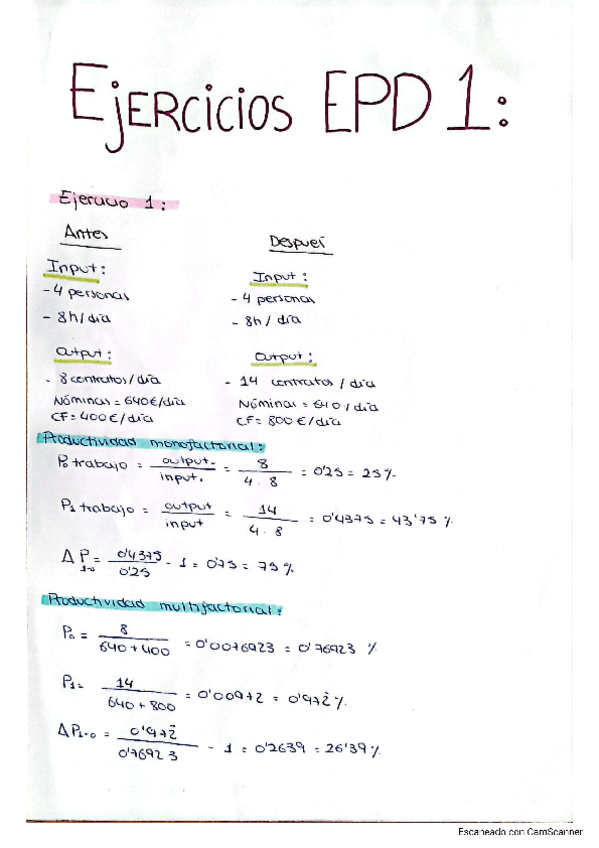 EJERCICIOS EPD 1:
Ejercicio 1:
Antes
Después
Input:
- 4 personas
- 8h/día
Input:
- 4 personas
- 8h/día
Output:
- 8 contratos/día
Nóminas = 640€/día
CF = 400€/día
Output:
- 14 contratos/día
Nóminas = 640/día
CF = 800€/día
Productividad monofactorial:
P₀ trabajo = output. / input. = 8 / 4·8 = 0'25 = 25%
P₁ trabajo = output / input = 14 / 4·8 = 0'4375 = 43'75%
ΔP₁₋₀ = 0'4375 / 0'25 - 1 = 0'75 = 75%
Productividad multifactorial:
P₀ = 8 / 640 + 400 = 0'0076923 = 0'76923%
P₁ = 14 / 640 + 800 = 0'00972 = 0'972̂%
ΔP₁₋₀ = 0'972̂ / 0'76923 - 1 = 0'2639 = 26'39%
Escaneado con CamScanner